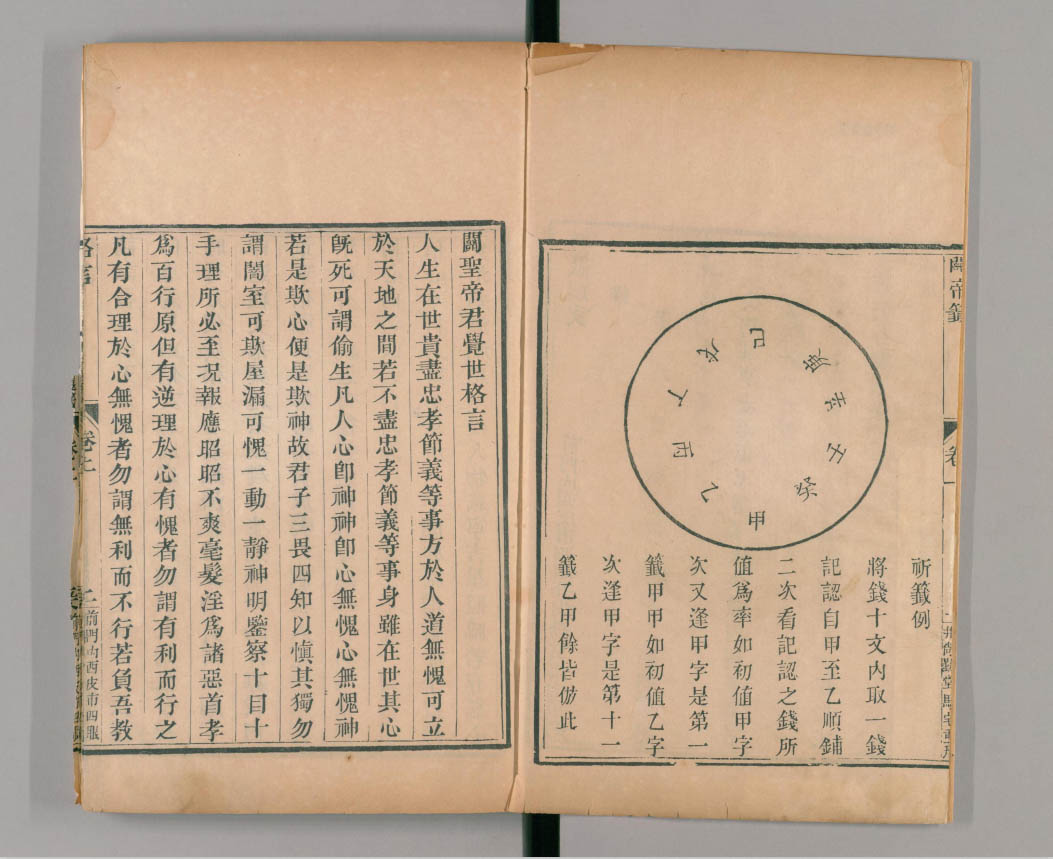 關帝籖
卷一
巳
庚
辛
壬
癸
甲
乙
丙
丁
戊
祈籖例
將錢十文內取一錢
記認自甲至乙順鋪
二次看記認之錢所
值爲率如初值甲字
次又逢甲字是第一
籖甲甲如初值乙字
次逢甲字是第十一
籖乙甲餘皆倣此
關聖帝君覺世格言
人生在世貴盡忠孝節義等事方於人道無愧可立
於天地之間若不盡忠孝節義等事身雖在世其心
旣死可謂偷生凡人心卽神神卽心無愧心無愧神
若是欺心便是欺神故君子三畏四知以愼其獨勿
謂闇室可欺屋漏可愧一動一靜神明鑒察十目十
手理所必至况報應昭昭不爽毫髮淫爲諸惡首孝
爲百行原但有逆理於心有愧者勿謂有利而行之
凡有合理於心無愧者勿謂無利而不行若負吾教
格言
卷上
前門內西皮市四